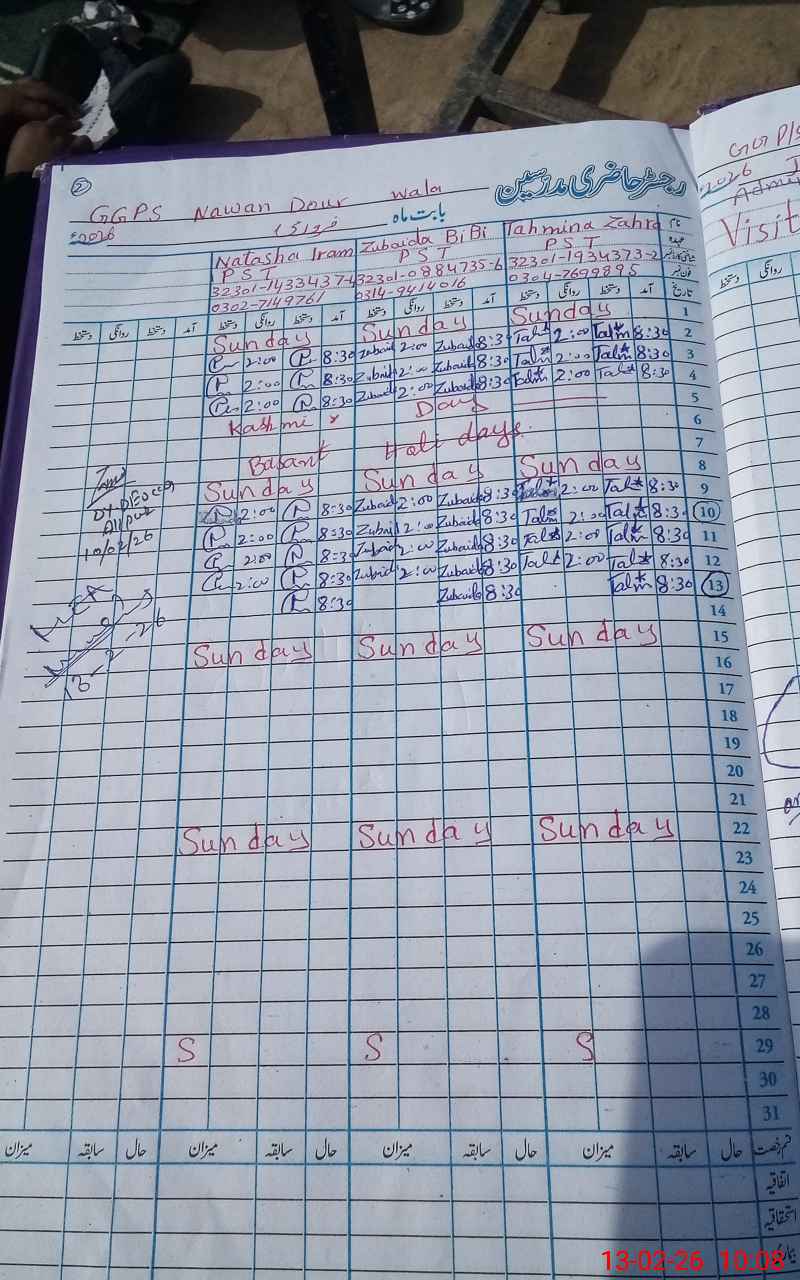 2
رجسٹر حاضری مدرسین
GGPS Nawan Dour wala
بابت ماہ فروری
2026ء
نام Tahmina Zahra Zubaida BiBi Natasha Iram
عہدہ PST PST PST
شناختی کارڈ نمبر 32301-1934373-2 32301-0884735-6 32301-1433437-4
فون نمبر 0304-7699895 0314-9414016 0302-7149761
تاریخ آمد دستخط روانگی دستخط آمد دستخط روانگی دستخط آمد دستخط روانگی دستخط آمد دستخط روانگی دستخط
1 Sunday Sunday Sunday
2 8:30 2:00 8:30 Zubaid 2:00 Zubaid 8:30 2:00
3 8:30 2:00 8:30 Zubaid 2:00 Zubaid 8:30 2:00
4 8:30 2:00 8:30 Zubaid 2:00 Zubaid 8:30 2:00
5 Kashmir Day
6 Basant Holi days
7
8 Sunday Sunday Sunday
9 8:30 2:00 8:30 Zubaid 2:00 Zubaid 8:30 2:00
10 8:30 2:00 8:30 Zubaid 2:00 Zubaid 8:30 2:00
11 8:30 2:00 8:30 Zubaid 2:00 Zubaid 8:30 2:00
12 8:30 2:00 8:30 Zubaid 2:00 Zubaid 8:30 2:00
13 8:30 8:30 Zubaid 8:30
14
15 Sunday Sunday Sunday
16
17
18
19
20
21
22 Sunday Sunday Sunday
23
24
25
26
27
28
29 S S S
30
31
قسم رخصت حال سابقہ میزان حال سابقہ میزان حال سابقہ میزان
اتفاقیہ
استحقاقیہ
Alipur
10/02/26
13-2-26
GGP/S
2026
Admi
Visit
روانگی دستخط
13-02-26 10:08